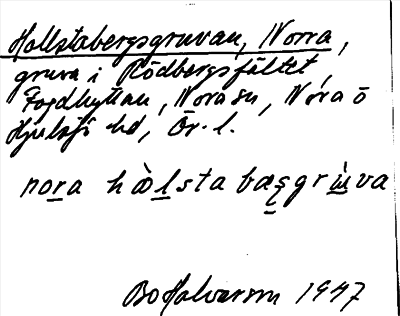 Hallstabergsgruvan, Norra,
gruva i Rödbergsfältet,
Fogdhyttan, Nora sn, Nora o
Hjulsjö hd, Ör. l.
nora hàlsta bæsgrùva
Bo Halvarson 1947